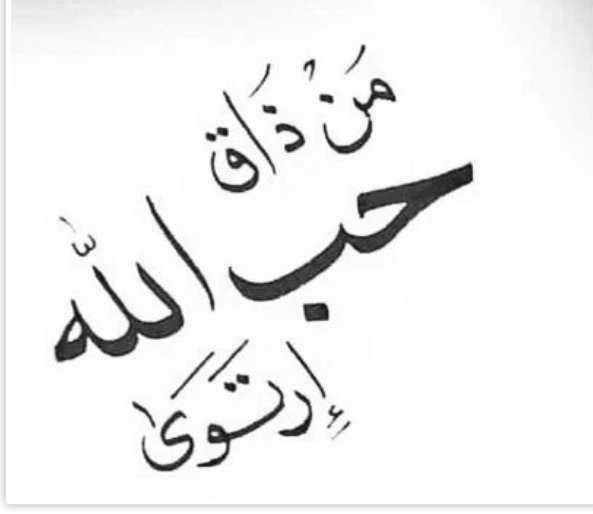 مَنْ ذَاقَ
حب اللّه
إِرتَوَىَ